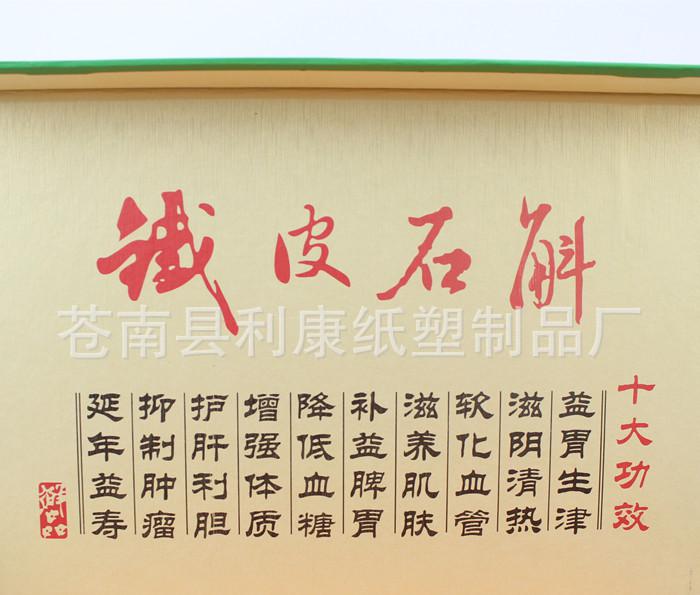 鐵皮石斛
苍南县利康纸塑制品厂
十大功效
益胃生津
滋阴清热
软化血管
滋养肌肤
补益脾胃
降低血糖
增强体质
护肝利胆
抑制肿瘤
延年益寿